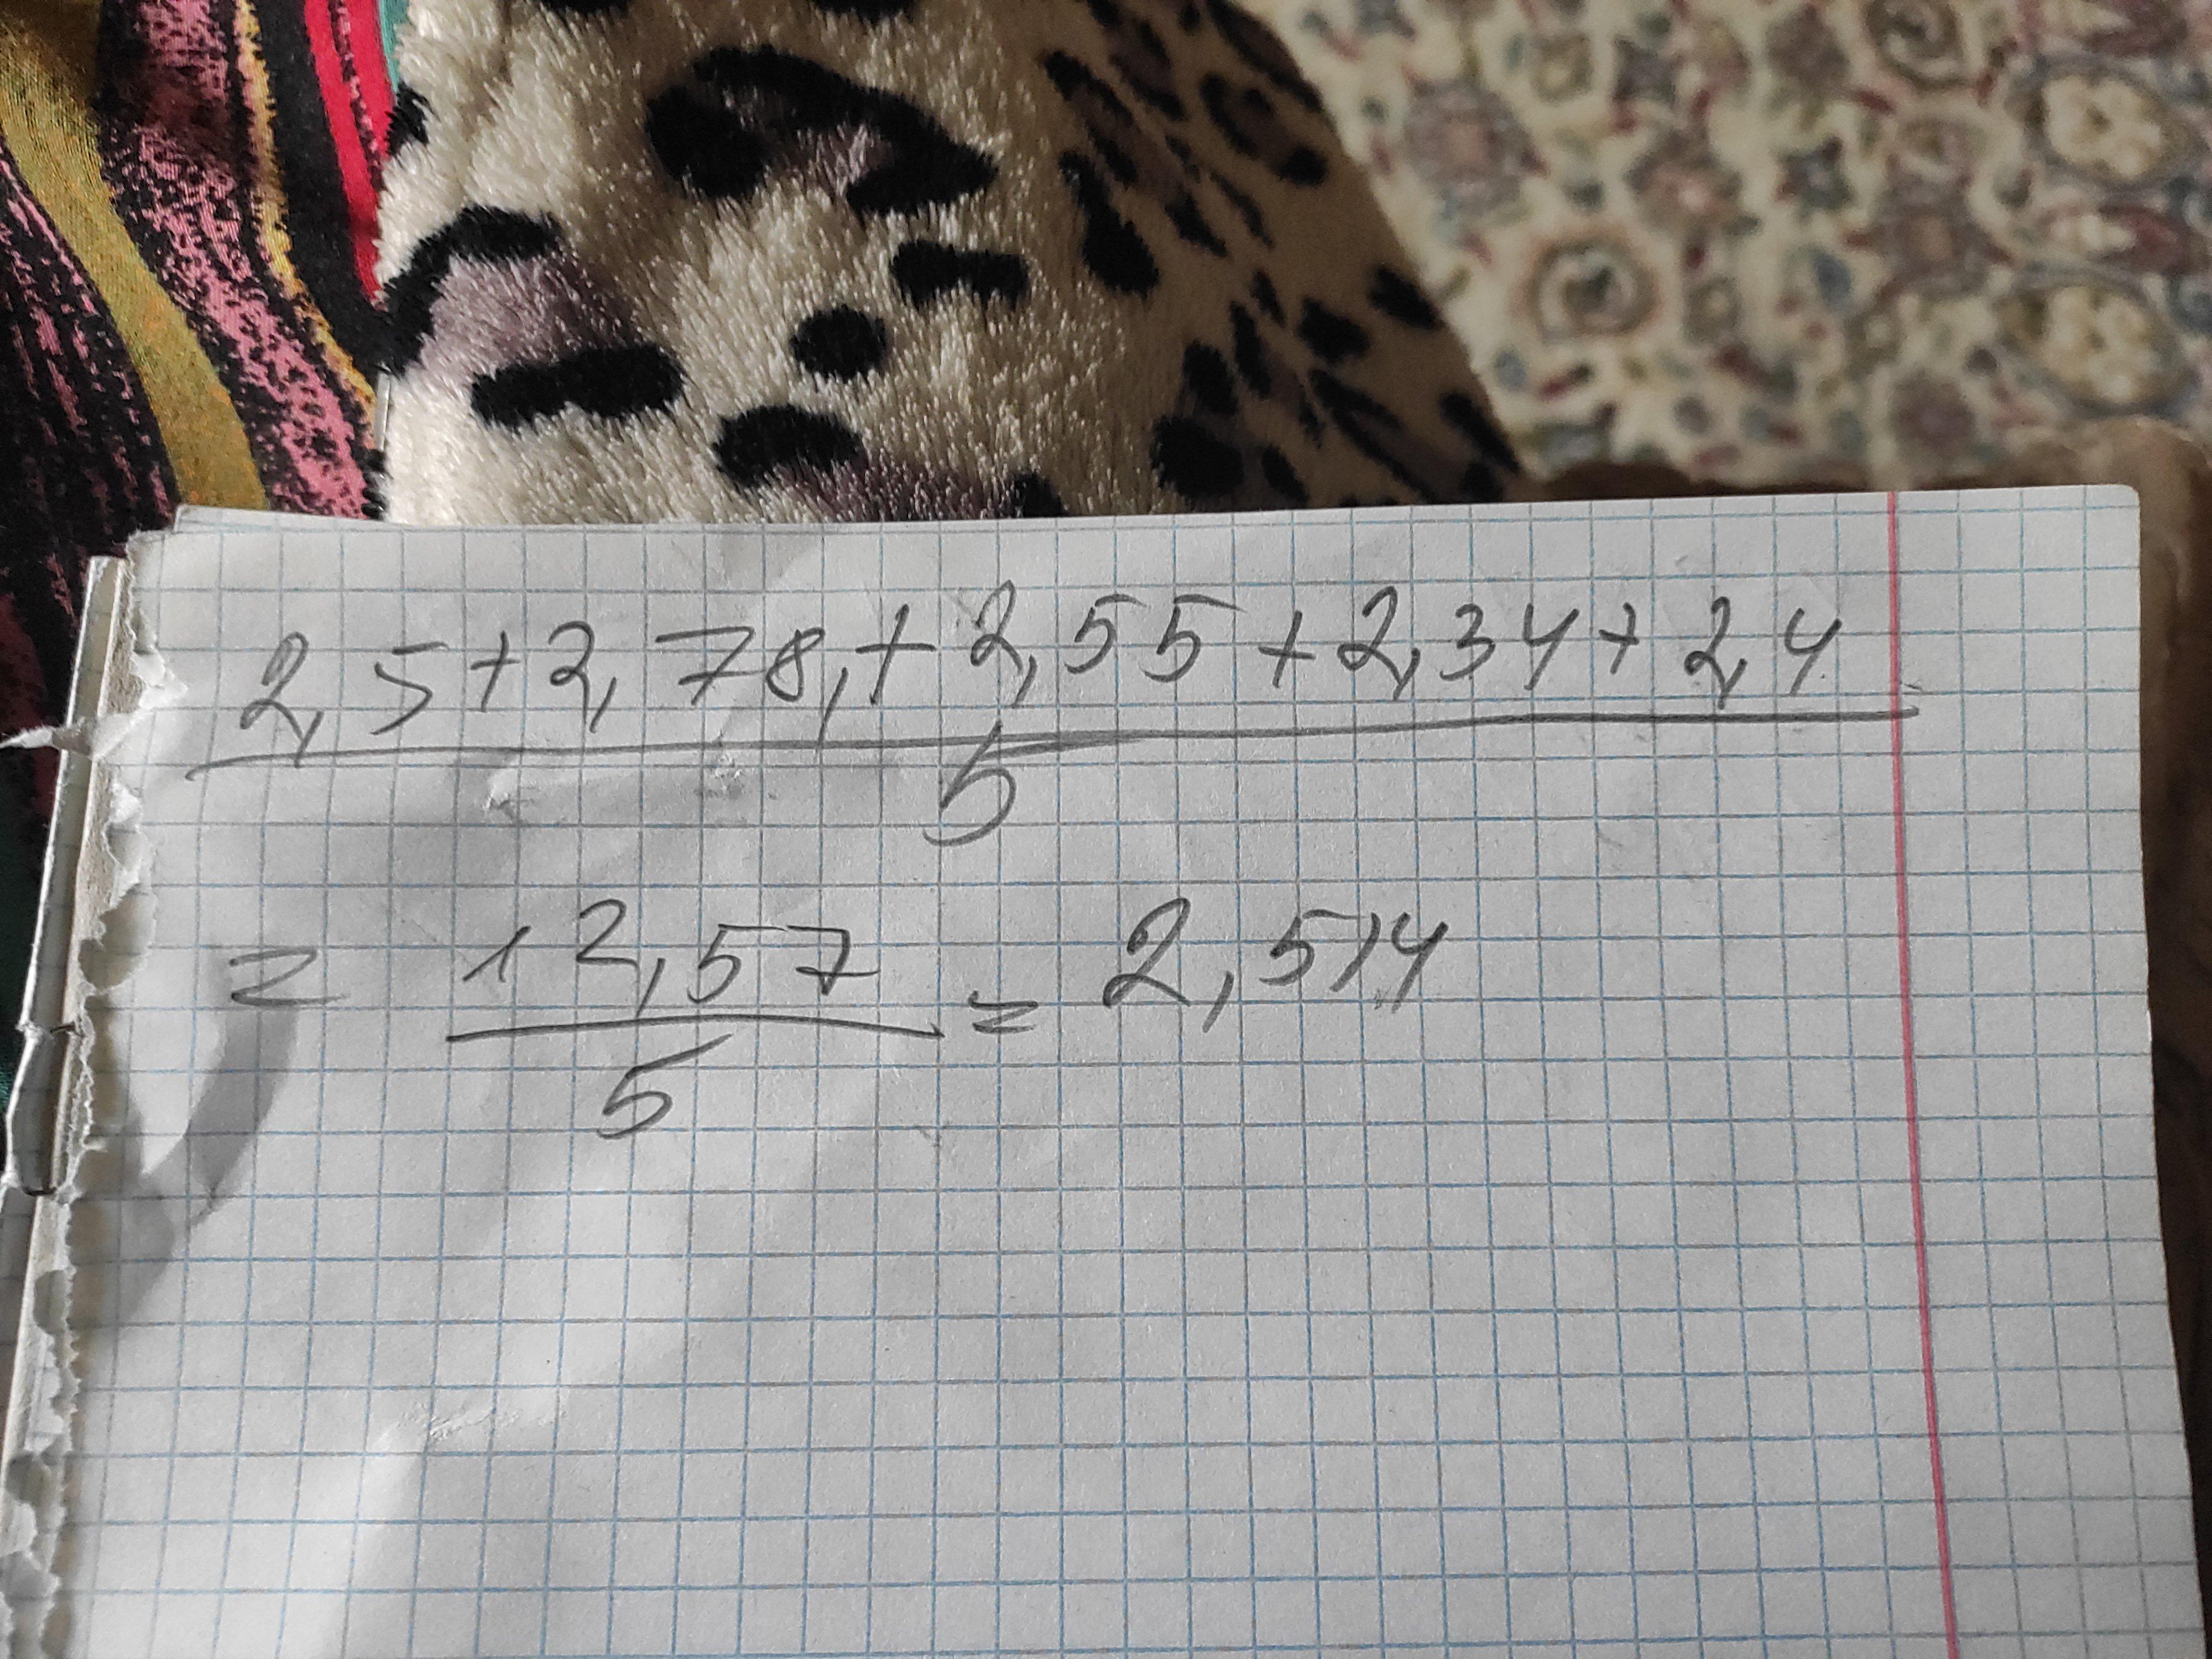 2,5+2,78,+2,55+2,34+2,4
5
= 12,57 = 2,514
5